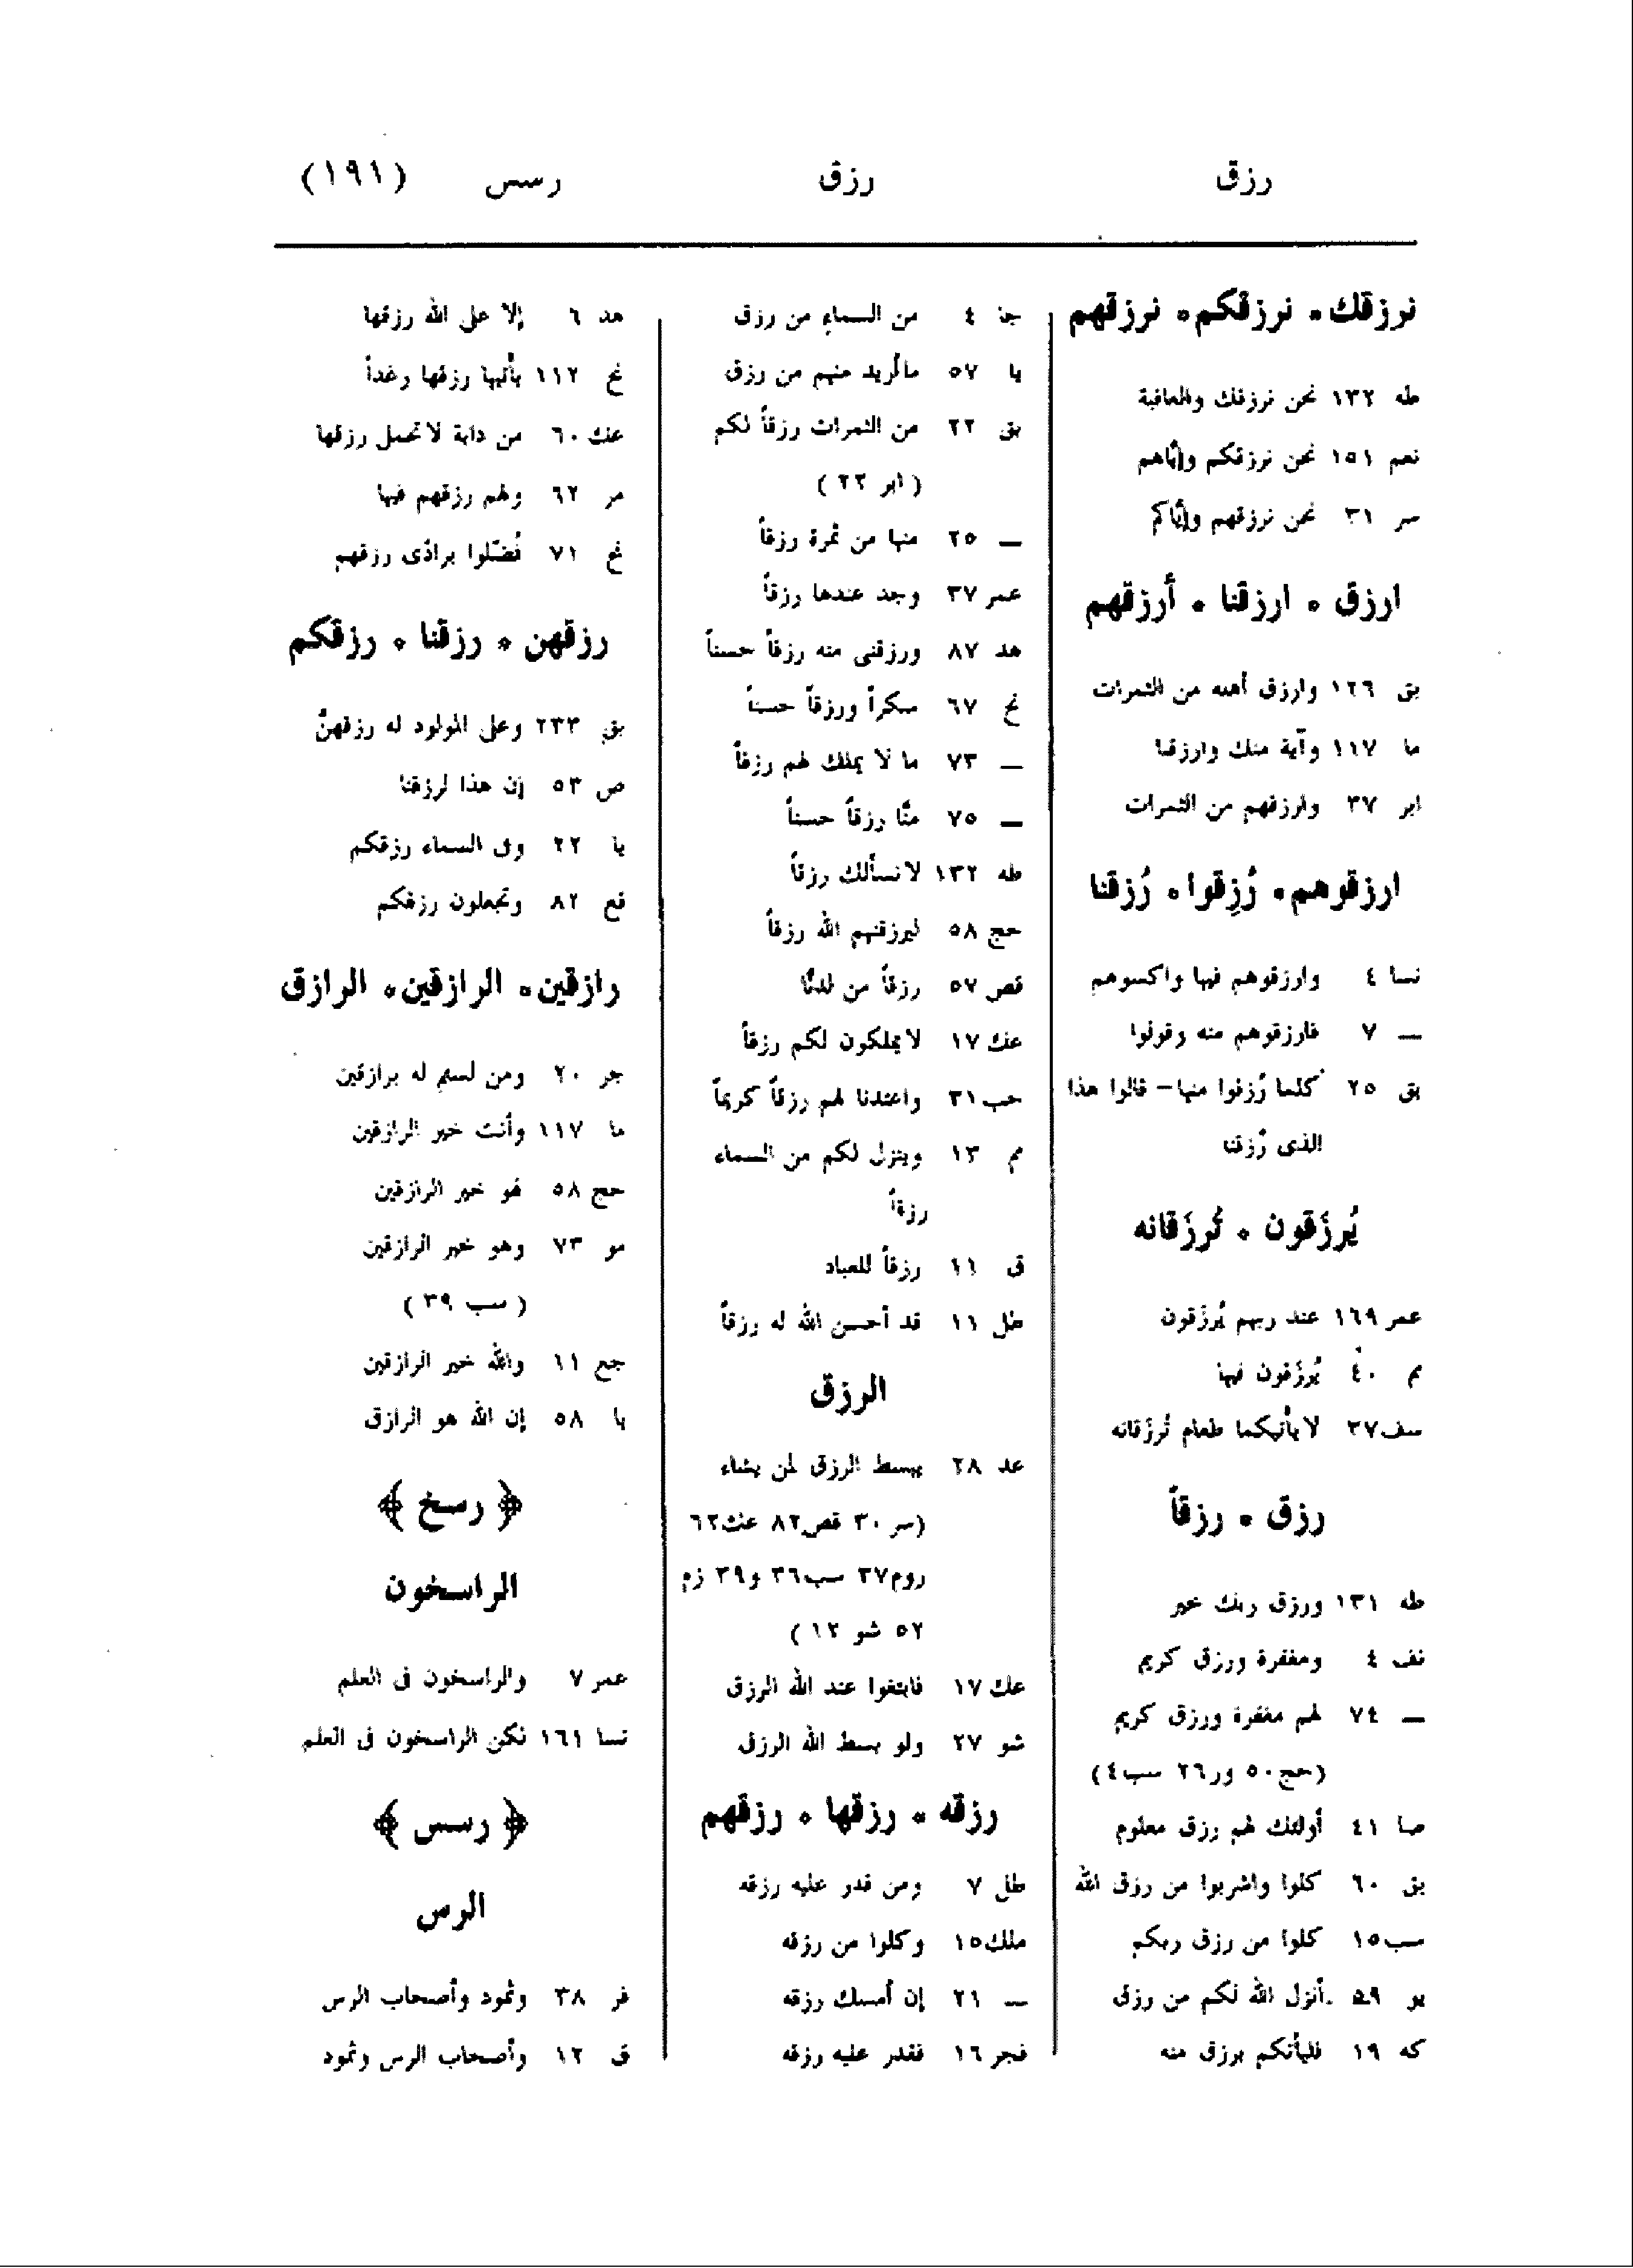 رزق رزق رسس (١٩١)
نرزقك • نرزقكم • نرزقهم
طه ١٣٢ نحن نرزقك والعاقبة
نعم ١٥١ نحن نرزقكم وإيّاهم
سر ٣١ نحن نرزقهم وإيّاكم
ارزق • ارزقنا • أرزقهم
بق ١٢٦ وارزق أهله من الثمرات
ما ١١٧ وآية منك وارزقنا
ابر ٣٧ وارزقهم من الثمرات
ارزقوهم • رُزِقوا • رُزقنا
نسا ٤ وارزقوهم فيها واكسوهم
— ٧ فارزقوهم منه وقولوا
بق ٢٥ كلما رُزقوا منها – قالوا هذا
الذى رُزقنا
يُرزَقون • تُرزَقانه
عمر ١٦٩ عند ربهم يُرزَقون
مم ٤٠ يُرزَقون فيها
سف ٣٧ لا يأتيكما طعام تُرزَقانه
رزق • رزقاً
طه ١٣١ ورزق ربك خير
نف ٤ ومغفرة ورزق كريم
— ٧٤ لهم مغفرة ورزق كريم
(حج ٥٠ ور ٢٦ سب ٤)
صا ٤١ أولئك لهم رزق معلوم
بق ٦٠ كلوا واشربوا من رزق الله
سب ١٥ كلوا من رزق ربكم
يو ٥٩ أنزل الله لكم من رزق
كه ١٩ فليأتكم برزق منه
جا ٤ من السماء من رزق
يا ٥٧ ما أريد منهم من رزق
بق ٢٢ من الثمرات رزقاً لكم
(ابر ٢٢)
— ٢٥ منها من ثمرة رزقاً
عمر ٣٧ وجد عندها رزقاً
هد ٨٧ ورزقنى منه رزقاً حسناً
نح ٦٧ سكراً ورزقاً حسناً
— ٧٣ ما لا يملك لهم رزقاً
— ٧٥ منّا رزقاً حسناً
طه ١٣٢ لا نسألك رزقاً
حج ٥٨ ليرزقنهم الله رزقاً
قص ٥٧ رزقاً من لدنّا
عنك ١٧ لا يملكون لكم رزقاً
حب ٣١ واعتدنا لهم رزقاً كريماً
مم ١٣ وينزل لكم من السماء
رزقاً
ق ١١ رزقاً للعباد
طل ١١ قد أحسن الله له رزقاً
الرزق
عد ٢٨ يبسط الرزق لمن يشاء
(سر ٣٠ قص ٨٢ عنك ٦٢
روم ٣٧ سب ٣٦ و ٣٩ زم
٥٢ شو ١٢)
عك ١٧ فابتغوا عند الله الرزق
شو ٢٧ ولو بسط الله الرزق
رزقه • رزقها • رزقهم
طل ٧ ومن قدر عليه رزقه
ملك ١٥ وكلوا من رزقه
— ٢١ إن أمسك رزقه
فجر ١٦ فقدر عليه رزقه
هد ٦ إلا على الله رزقها
نح ١١٢ يأتيها رزقها رغداً
عنك ٦٠ من دابة لا تحمل رزقها
مر ٦٢ ولهم رزقهم فيها
نح ٧١ فُضّلوا برادّى رزقهم
رزقهن • رزقنا • رزقكم
بق ٢٣٣ وعلى المولود له رزقهنّ
ص ٥٣ إن هذا لرزقنا
يا ٢٢ وفى السماء رزقكم
قع ٨٢ وتجعلون رزقكم
رازقين • الرازقين • الرازق
جر ٢٠ ومن لستم له برازقين
ما ١١٧ وأنت خير الرازقين
حج ٥٨ لهو خير الرازقين
مو ٧٣ وهو خير الرازقين
(سب ٣٩)
جع ١١ والله خير الرازقين
يا ٥٨ إن الله هو الرازق
﴿ رسخ ﴾
الراسخون
عمر ٧ والراسخون فى العلم
نسا ١٦١ لكن الراسخون فى العلم
﴿ رسس ﴾
الرس
فر ٣٨ وثمود وأصحاب الرس
ق ١٢ وأصحاب الرس وثمود